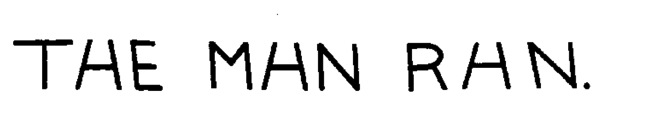 THE MAN RAN.